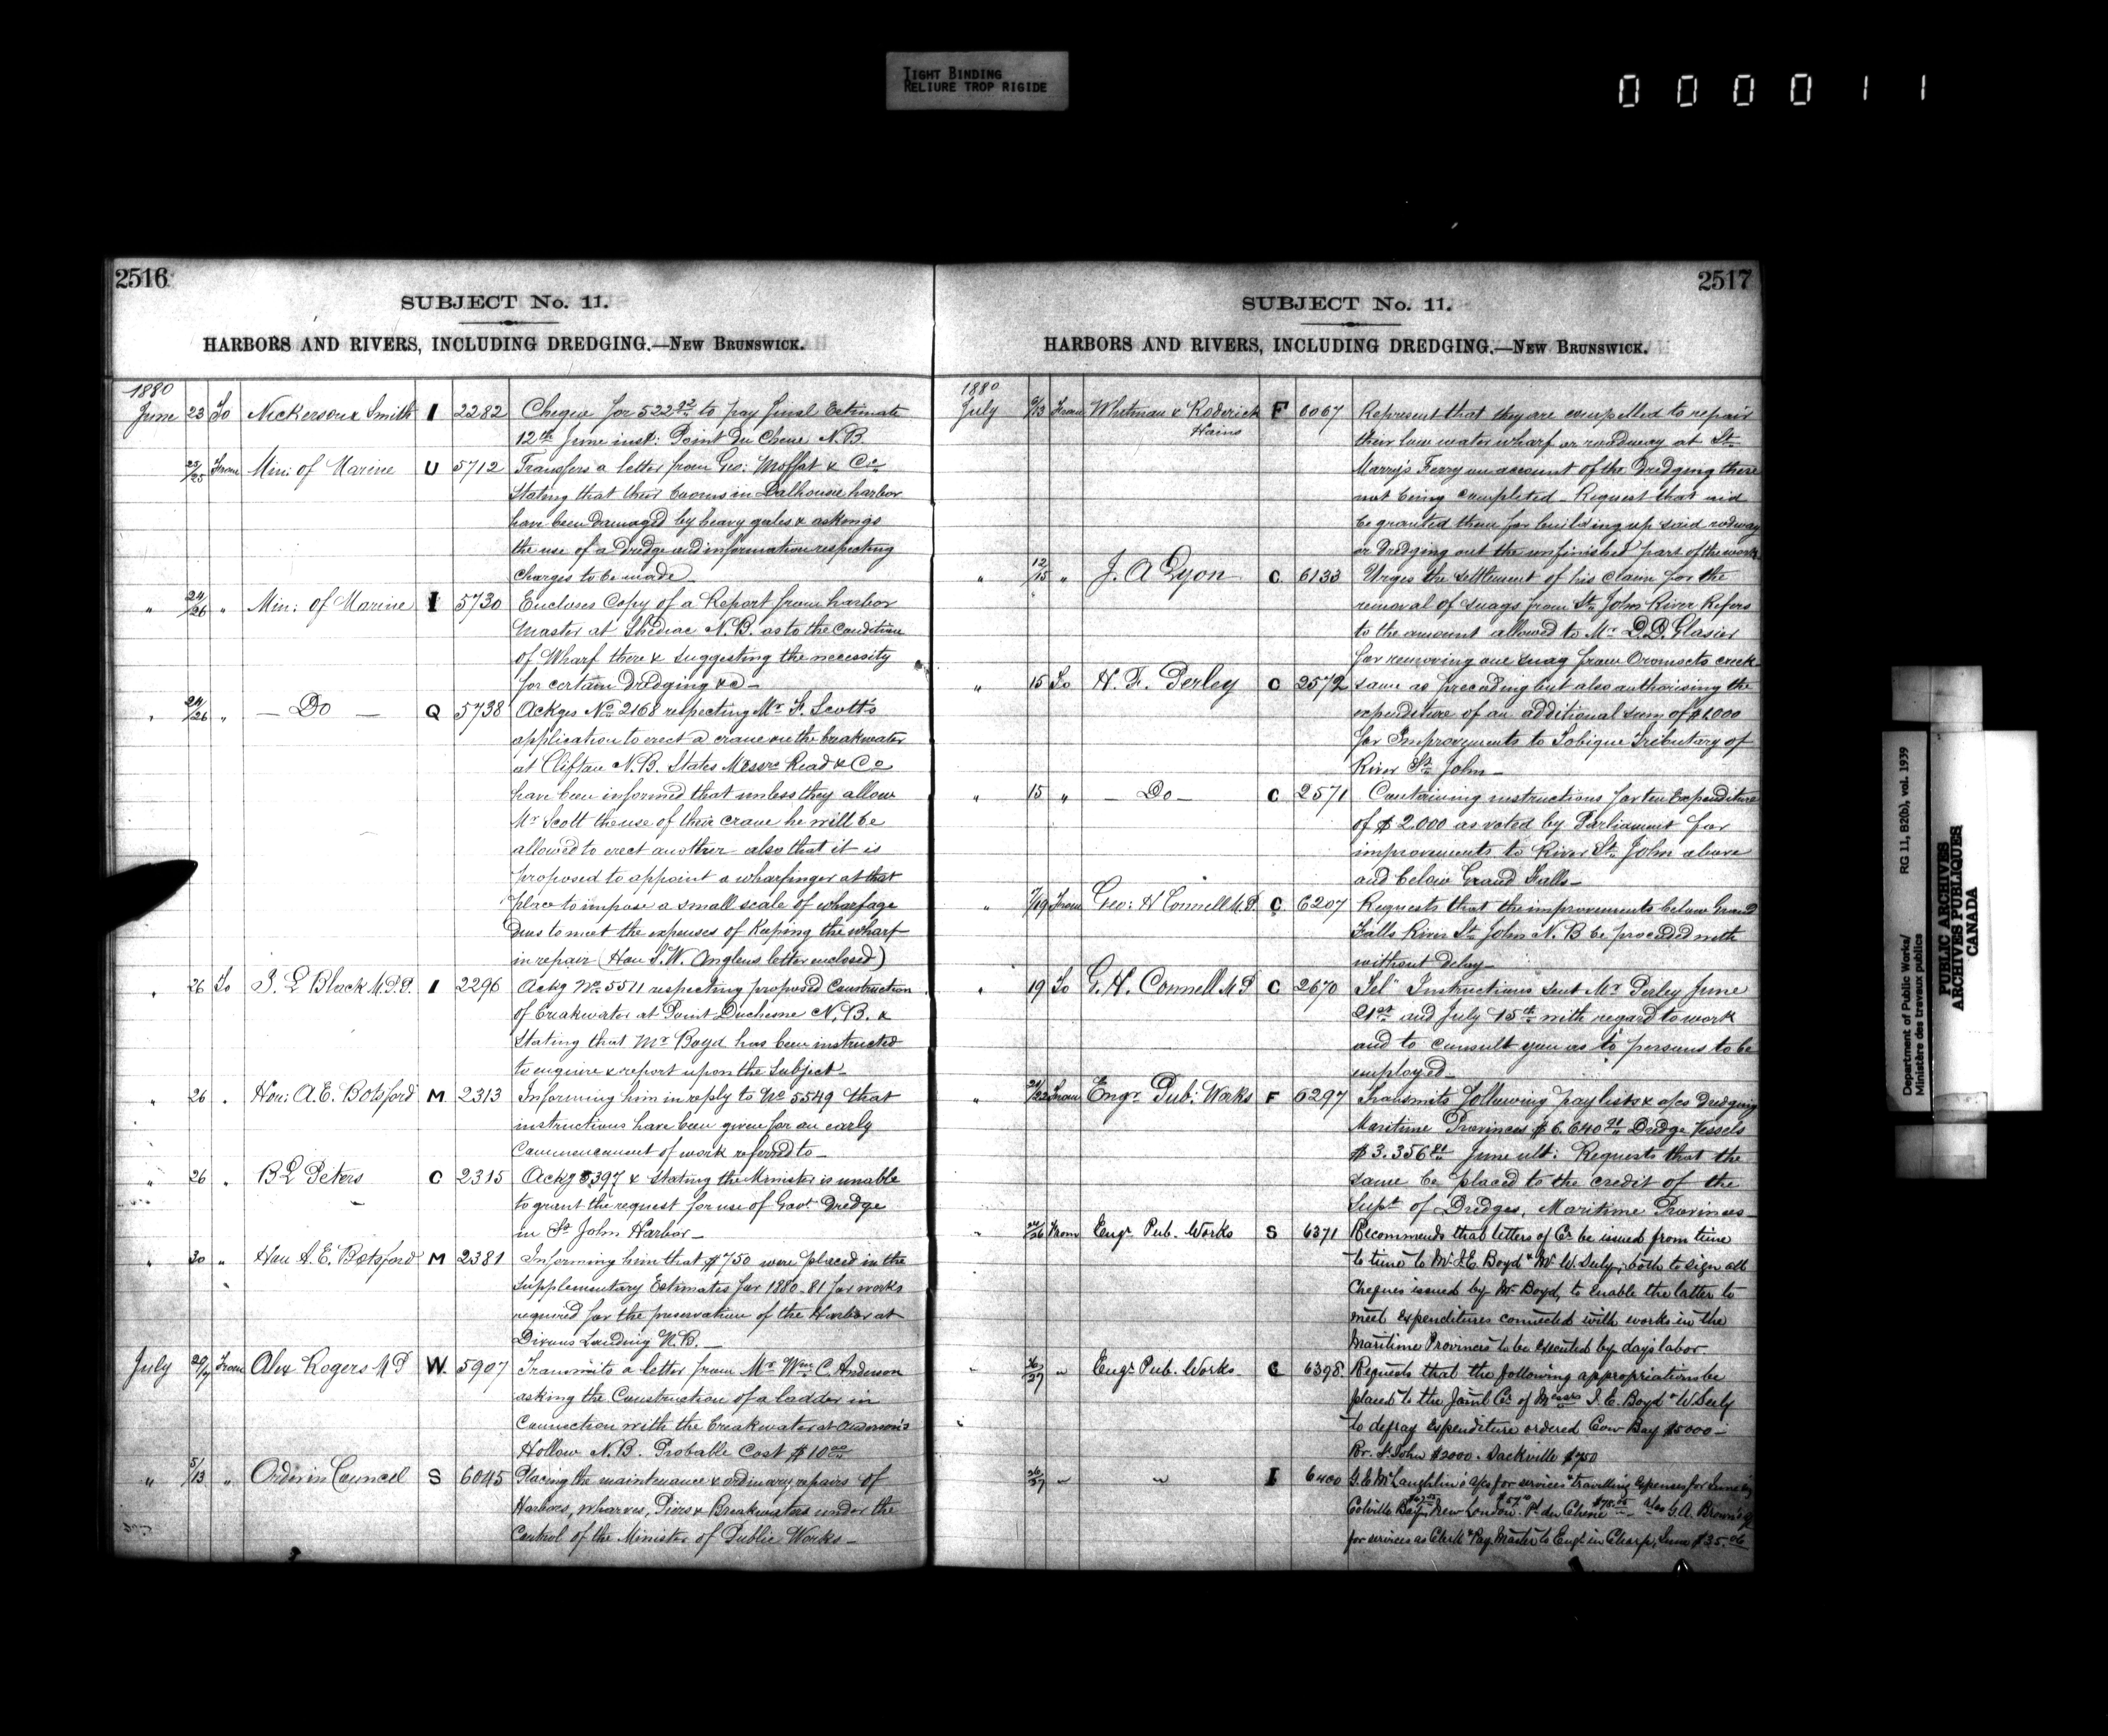 TIGHT BINDING
RELIURE TROP RIGIDE
000011
2516
SUBJECT No. 11.
HARBORS AND RIVERS, INCLUDING DREDGING.—NEW BRUNSWICK.
1880
June 23 To Nickerson & Smith I 2282 Cheque for 522 92 to pay final Estimate
12th June inst: Point Du Chene N.B.
25/25 From Min: of Marine U 5712 Transfers a letter from Geo: Moffat & Co
Stating that their booms in Dalhousie harbor
have been damaged by heavy gales & asking
the use of a Dredge and information respecting
charges to be made
" 24/26 " Min: of Marine I 5730 Encloses Copy of a Report from harbor
Master at Shediac N.B. as to the condition
of Wharf there & suggesting the necessity
for certain dredging &c —
" 24/26 " — Do — Q 5738 Ackges No 2168 respecting Mr F. Scott's
application to erect a crane on the breakwater
at Clifton N.B. States Messrs Read & Co
have been informed that unless they allow
Mr Scott the use of their crane he will be
allowed to erect another also that it is
proposed to appoint a wharfinger at that
place to impose a small scale of wharfage
Dues to meet the expenses of Keeping the wharf
in repair (Hon T.W. Anglins letter enclosed)
" 26 To J. L Black M.P.P. I 2296 Ackg No 5511 respecting proposed Construction
of breakwater at Point Duchesne N.B. &
Stating that Mr Boyd has been instructed
to enquire & report upon the subject —
" 26 " Hon: A.E. Botsford M 2313 Informing him in reply to No 5549 that
instructions have been given for an early
Commencement of work referred to —
" 26 " B L Peters C 2315 Ackg 5397 & stating the Minister is unable
to grant the request for use of Govt Dredge
in St John Harbor —
" 30 " Hon A.E. Botsford M 2381 Informing him that $750 were placed in the
Supplementary Estimates for 1880-81 for works
required for the preservation of the Harbor at
Dixons Landing N.B. —
July From Alex Rogers M P W. 5907 Transmits a letter from Mr Wm C. Anderson
asking the Construction of a ladder in
Connection with the breakwater at Anderson's
Hollow N.B. Probable Cost $10 00
" 5/13 " Order in Council S 6045 Placing the maintenance & ordinary repairs of
Harbors, wharves, Piers & Breakwaters under the
Control of the Minister of Public Works —
2517
SUBJECT No. 11.
HARBORS AND RIVERS, INCLUDING DREDGING.—NEW BRUNSWICK.
1880
July From Whitman & Roderick F 6067 Represent that they are compelled to repair
Hains their low water wharf or roadway at St
Marry's Ferry on account of the dredging there
not being completed — Request that aid
be granted them for building up said rodway
or Dredging out the unfinished part of the work
" 12/15 " J. A Lyon C 6133 Urges the settlement of his claim for the
removal of snags from St John River Refers
to the amount allowed to Mr D.D. Glasier
for removing one snag from Oromocto creek
" 15 To H. F. Perley C 2572 Same as preceding but also authorising the
expenditure of an additional sum of $1000
for Improvements to Tobique Tributary of
River St John —
" 15 " — Do — C 2571 Containing instructions for the Expenditure
of $2.000 as voted by Parliament for
improvements to River St John above
and below Grand Falls —
" From Geo: H Connell M.P. C 6207 Requests that the improvements below Grand
Falls River St John N.B be proceeded with
without delay —
" 19 To G. H. Connell M P C 2670 Tel" Instructions sent Mr Perley June
21st and July 15th with regard to work
and to consult you as to persons to be
employed —
" 21/22 From Engr Pub: Works F 6297 Transmits following paylists & a/cs Dredging
Maritime Provinces $6.640 Dredge Vessels
$3.356 June ult: Requests that the
same be placed to the credit of the
Supt of Dredges, Maritime Provinces —
" From Engr Pub. Works S 6371 Recommends that letters of Cr be issued from time
to time to Mr J.E. Boyd & Mr W. Seely, both to sign all
Cheques issued by Mr Boyd, to enable the latter to
meet expenditures connected with works in the
Maritime Provinces to be executed by days labor
26/27 " Engr Pub. Works C 6398 Requests that the following appropriations be
placed to the Joint Cr of Messrs J. E. Boyd & W Seely
to defray expenditure ordered Cow Bay $5000 —
Rr. St John $2000. Sackville $750
26/27 " " I 6400 G.E McLaughlin's a/cs for services & travelling expenses for June
Colville Bay New London Pt du Chene also G.A. Brown's
for services as Clerk & Pay Master to Engr in Charge, June $35.06
Department of Public Works/
Ministère des travaux publics
RG 11, B20(b), vol. 1939
PUBLIC ARCHIVES
ARCHIVES PUBLIQUES
CANADA